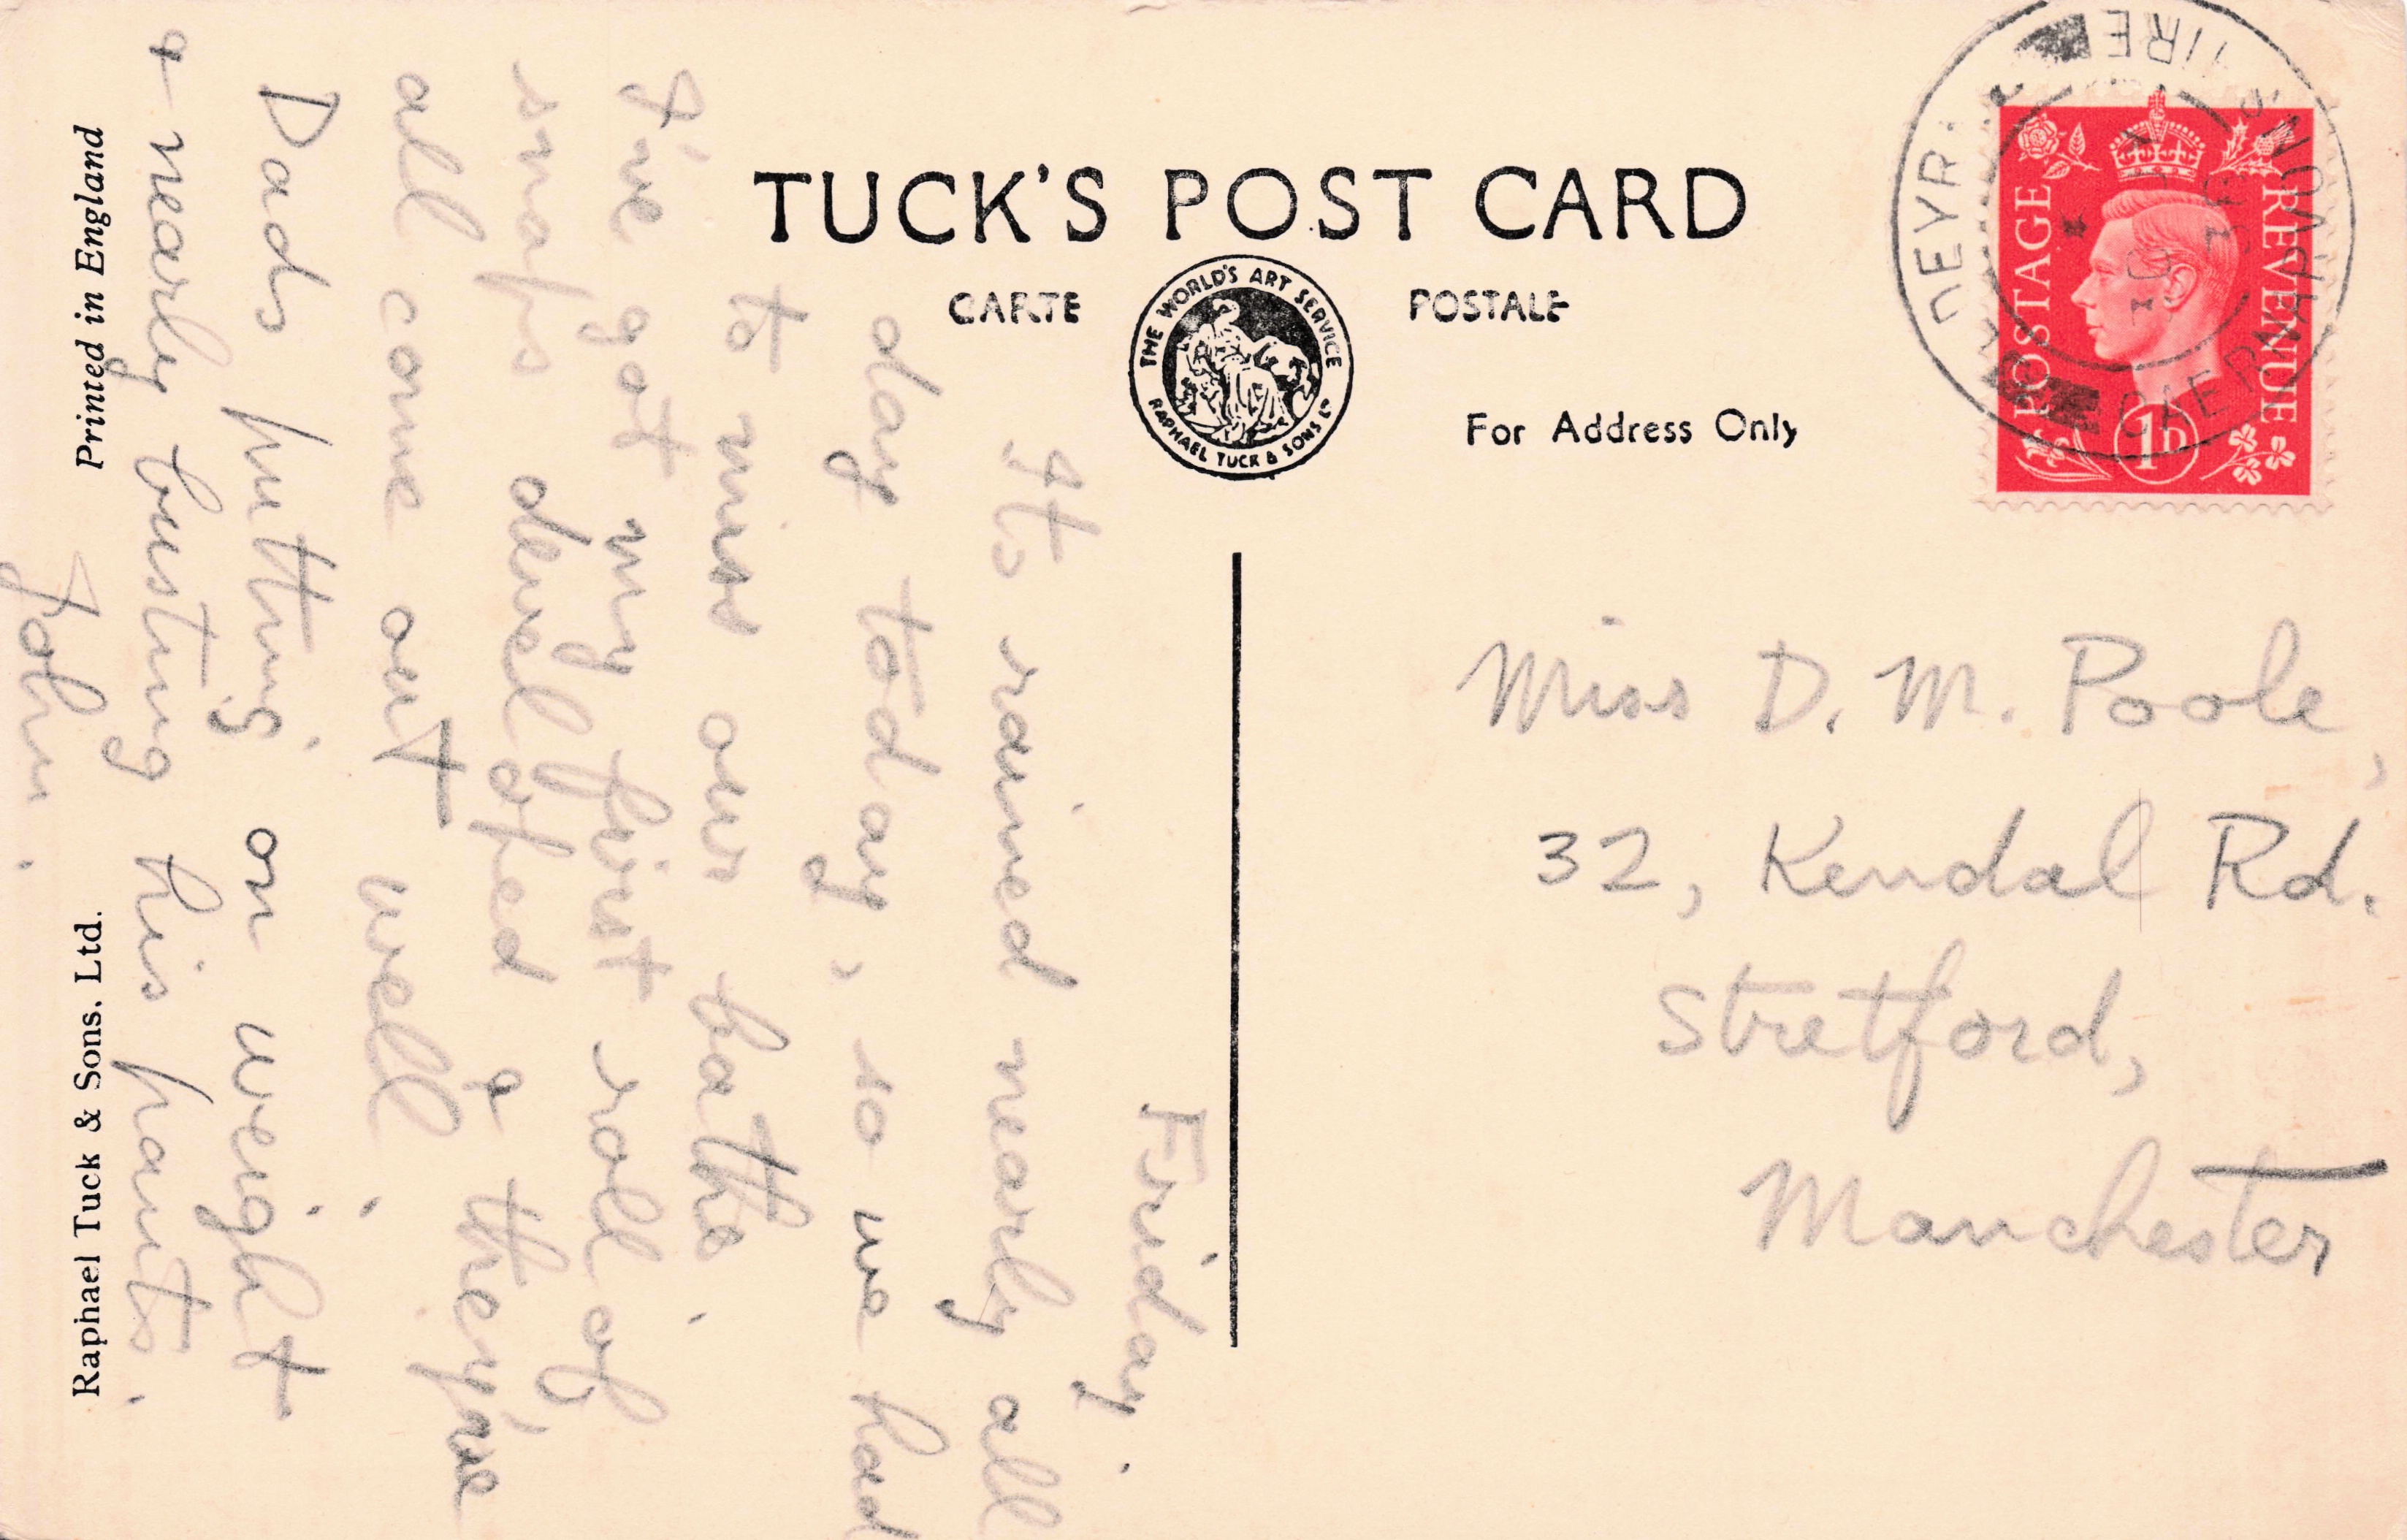 TUCK'S POST CARD
CARTE POSTALE
THE WORLD'S ART SERVICE
RAPHAEL TUCK & SONS LTD
For Address Only
POSTAGE REVENUE
1D
CAERNARVONSHIRE
Printed in England
Raphael Tuck & Sons. Ltd.
Friday.
Its rained nearly all
day today, so we had
to miss our bathe.
I've got my first roll of
snaps developed & they've
all come out well.
Dads putting on weight
& nearly busting his pants.
John.
Miss D. M. Poole,
32, Kendal Rd.
Stretford,
Manchester